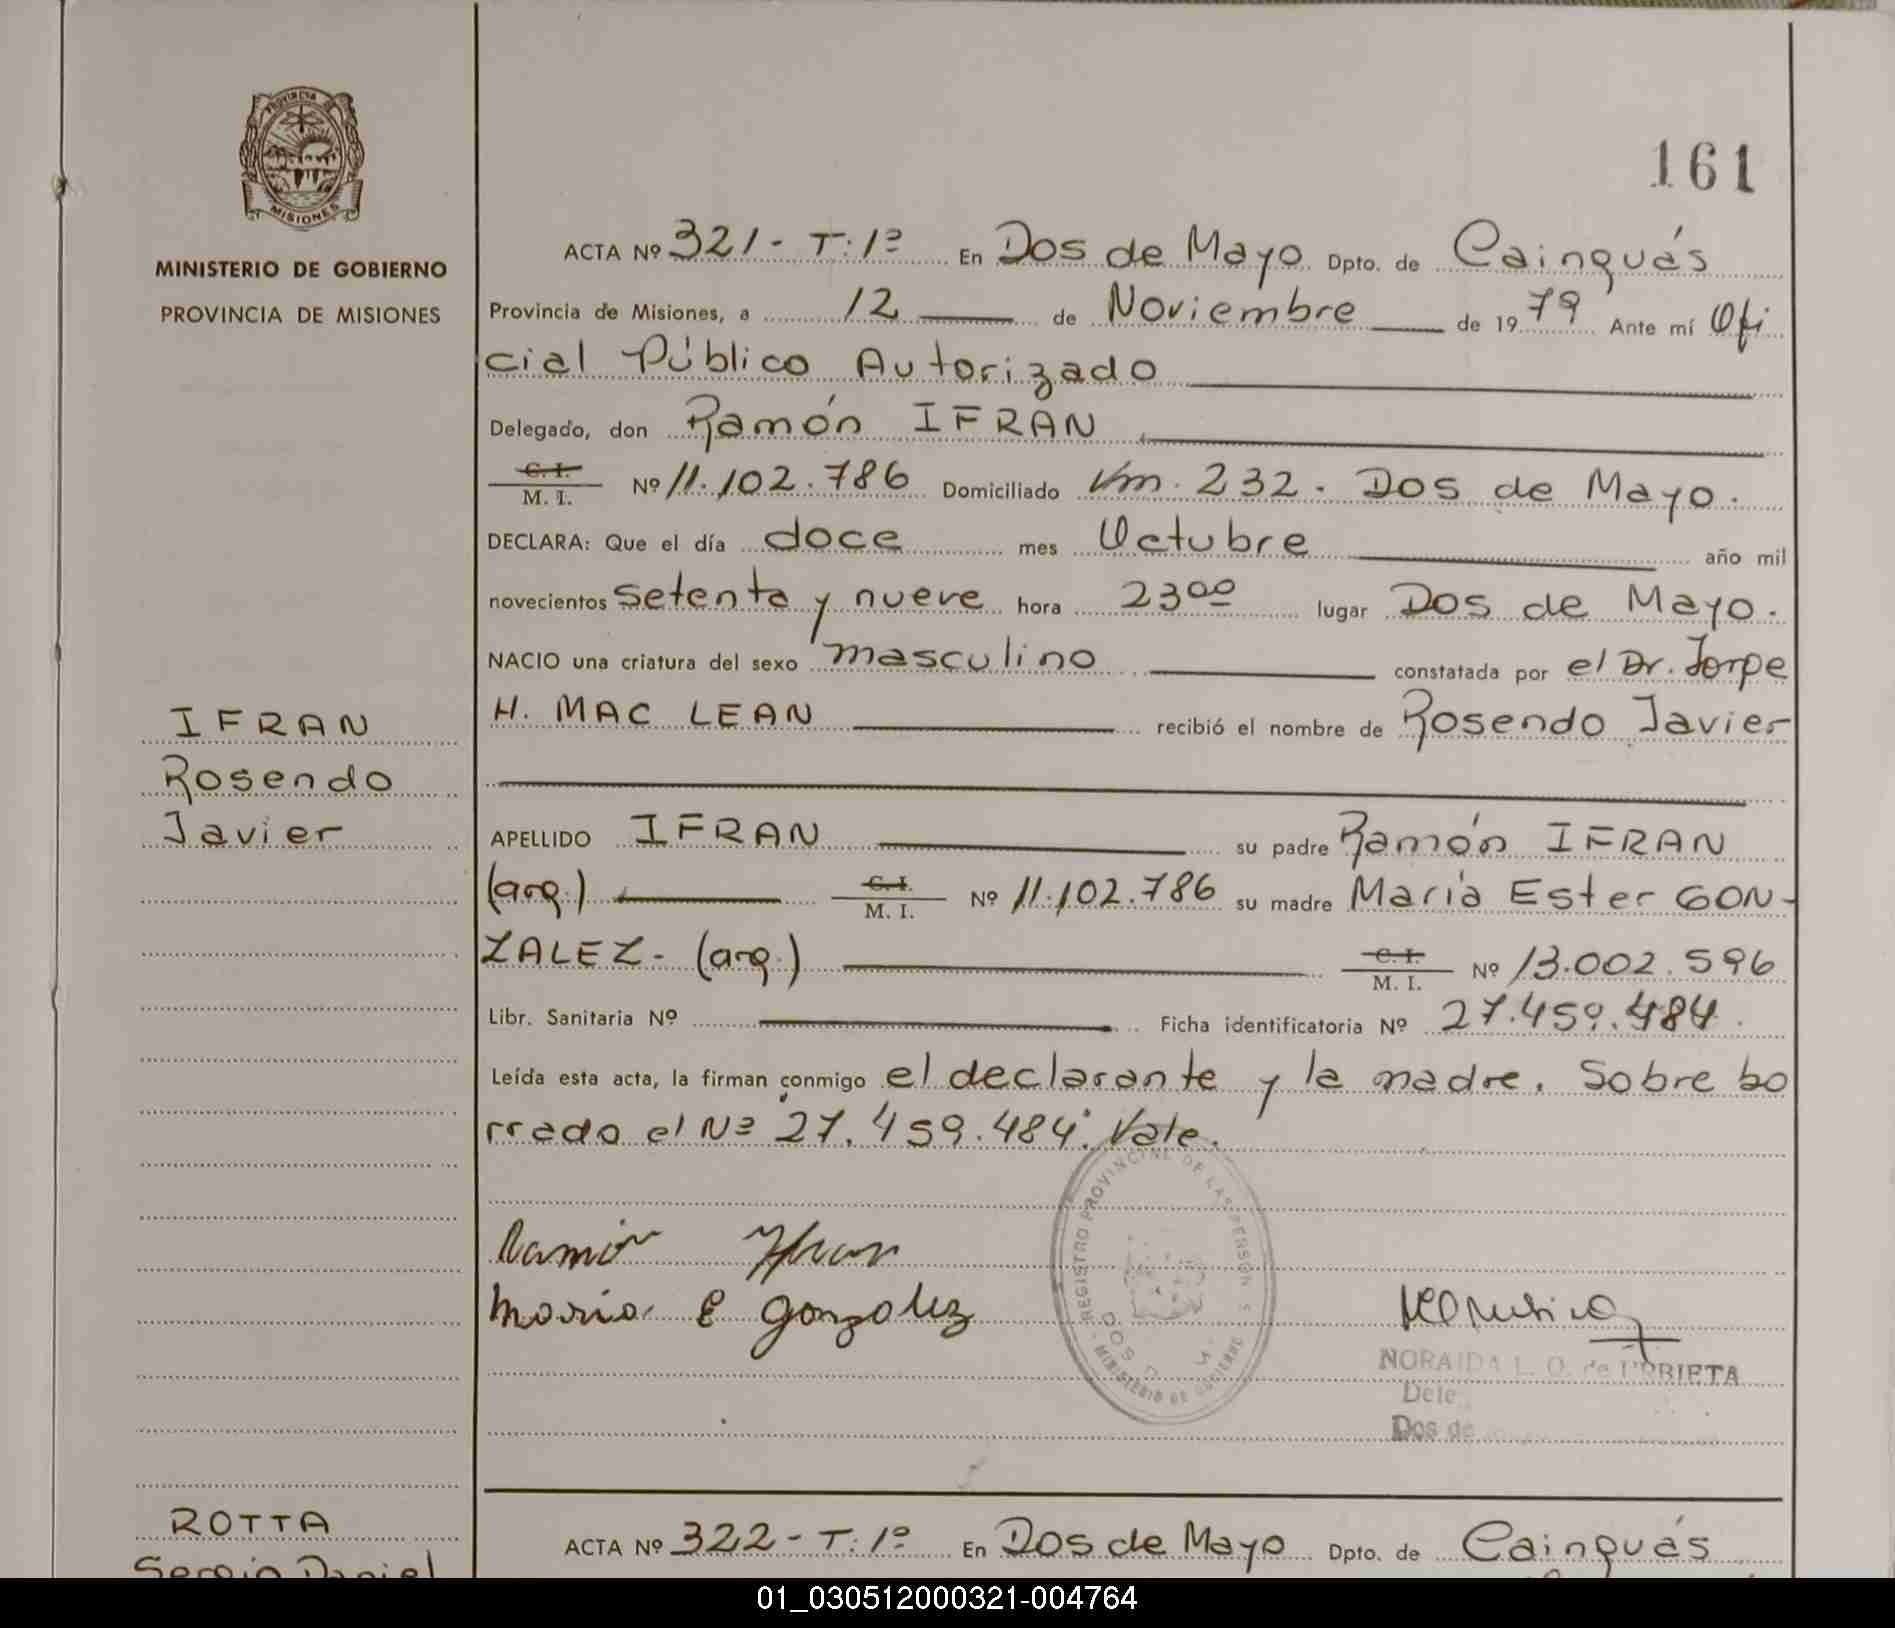 PROVINCIA DE
MISIONES
MINISTERIO DE GOBIERNO
PROVINCIA DE MISIONES
161
ACTA Nº 321 - T: 1º En Dos de Mayo Dpto. de Cainguás
Provincia de Misiones, a 12 de Noviembre de 1979 Ante mí Ofi
cial Público Autorizado
Delegado, don Ramón IFRAN
C. I.
M. I. Nº 11.102.786 Domiciliado Km. 232. Dos de Mayo.
DECLARA: Que el día doce mes Octubre año mil
novecientos setenta y nueve hora 23ºº lugar Dos de Mayo.
NACIO una criatura del sexo masculino constatada por el Dr. Jorge
H. MAC LEAN recibió el nombre de Rosendo Javier
IFRAN
Rosendo
Javier
APELLIDO IFRAN su padre Ramón IFRAN
(arg.) C. I.
M. I. Nº 11.102.786 su madre María Ester GON-
ZALEZ. (arg.) C. I.
M. I. Nº 13.002.596
Libr. Sanitaria Nº Ficha identificatoria Nº 27.459.484.
Leída esta acta, la firman conmigo el declarante y la madre. Sobre bo
rrado el Nº "27.459.484". Vale.
Ramón Ifran
Maria E Gonzalez
REGISTRO PROVINCIAL DE LAS PERSONAS
MINISTERIO DE GOBIERNO
NORAIDA L. O. de URRIETA
Dele
Dos de
ROTTA
Sergio Daniel
ACTA Nº 322 - T: 1º En Dos de Mayo Dpto. de Cainguás
01_030512000321-004764